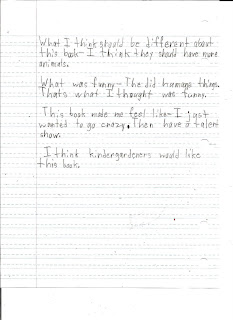 What I think should be different about
this book - I think they should have more
animals.
What was funny - The did humans things.
Thats what I thought was funny.
This book made me feel like - I just
wanted to go crazy. Then have a talent
show.
I think kindergardeners would like
this book.